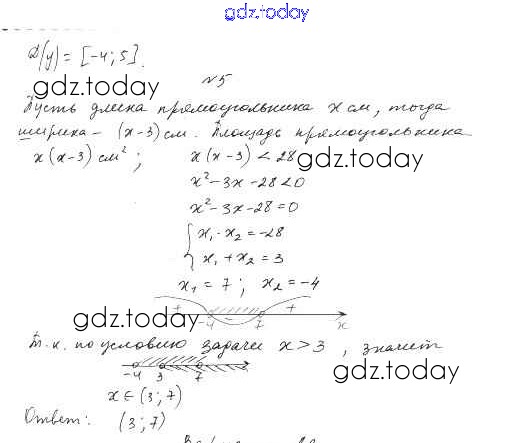 gdz.today
D(y) = [-4; 5].
gdz.today
№5
Пусть длина прямоугольника x см, тогда
ширина - (x-3) см. Площадь прямоугольника
x(x-3) см²; x(x-3) < 28
gdz.today
x²-3x-28<0
x²-3x-28=0
x₁·x₂=-28
x₁+x₂=3
x₁=7; x₂=-4
+ - +
gdz.today
-4 7 x
Т.к. по условию задачи x>3, значит
gdz.today
-4 3 7
x∈(3;7)
Ответ: (3;7)